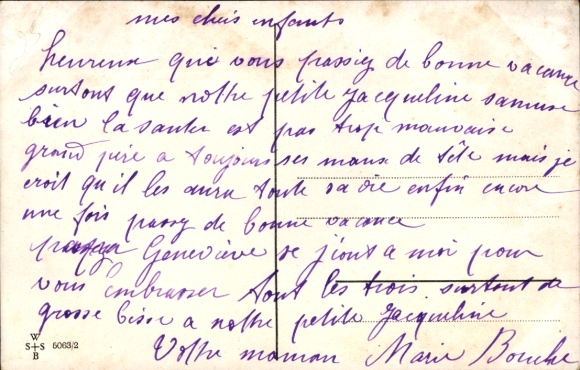 mes chers enfants
heureux que vous passiez de bonne vacance
surtout que nottre petite Jacqueline samuse
bien la santer est pas trop mauvaise
grand père a toujours ses maux de tête mais je
croit qu'il les aura toute sa vie enfin encore
une fois passez de bonne vacance
Geneviève se joint a moi pour
vous embrasser tout les trois surtout de
grosse bisse a nottre petite Jacqueline
Vottre maman Marie
W
S+S
B
6063/2